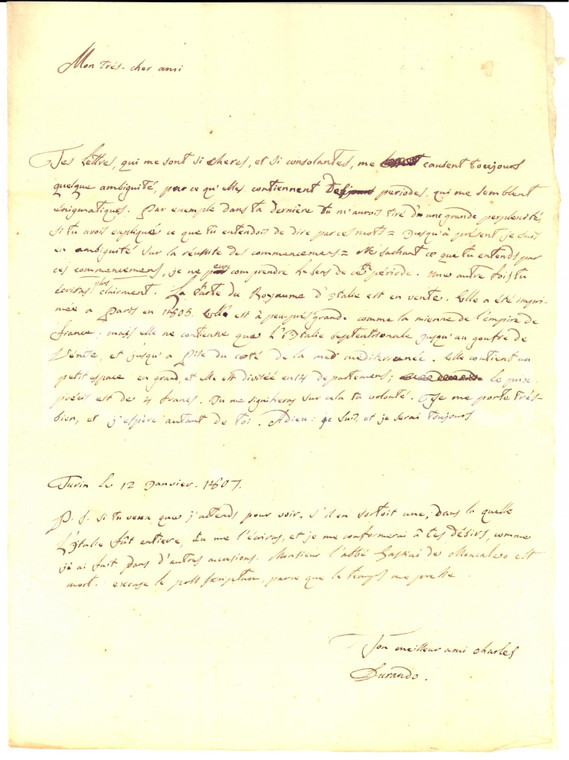 Mon très-cher ami
Tes lettres, qui me sont si cheres, et si consolantes, me causent toujours
quelque ambiguité, par ce qu'elles contiennent des periodes, qui me semblent
énigmatiques. Par exemple dans ta dernière tu m'aurois tiré d'une grande perplexité
si tu avois expliqué ce que tu entendois de dire par ces mots = Jusqu'à présent je suis
en ambiguité sur la réussite des commencemens = Ne sachant ce que tu entends par
ces commencemens, je ne peux comprendre le sens de cette période. Une autre fois tu
écriras plus clairment. La Carte du Royaume d'Italie est en vente. Elle a été impri-
mée a Paris en 1806. Elle est à peu près grande comme la mienne de l'empire de
france: mais elle ne contienne que l'Italie septentrionale jusqu'au goufre de
Venise, et jusqu'a Pise du coté de la mer mediterranée. Elle contient un
petit espace en grand et elle est divisée en 14 departemens; le prix
précis est de 4 francs. Tu me signiferas sur cela ta volonté. Je me porte très-
bien, et j'espère autant de toi. Adieu: je suis, et je serai toujours
Turin le 12 Janvier. 1807.
P. S. si tu veux que j'attends pour voir, s'il en sortoit une, dans la quelle
l'Italie fût entiere, tu me l'écriras, et je me conformerai à tes désirs, comme
j'ai fait dans d'autres occasions. Monsieur l'abbé de Moncalvo est
mort. excuse le post scriptum, parce que le temps me presse.
Ton meilleur ami charles
Durando.